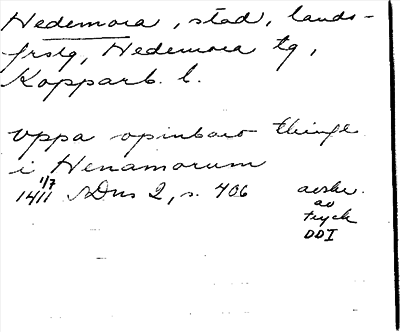 Hedemora, stad, lands-
frslg, Hedemora tg,
Kopparb. l.
vppa opinbaro thinge
i Henamorum
1/7
1411 SDns 2, s. 406
avskr.
av
tryck
DDI